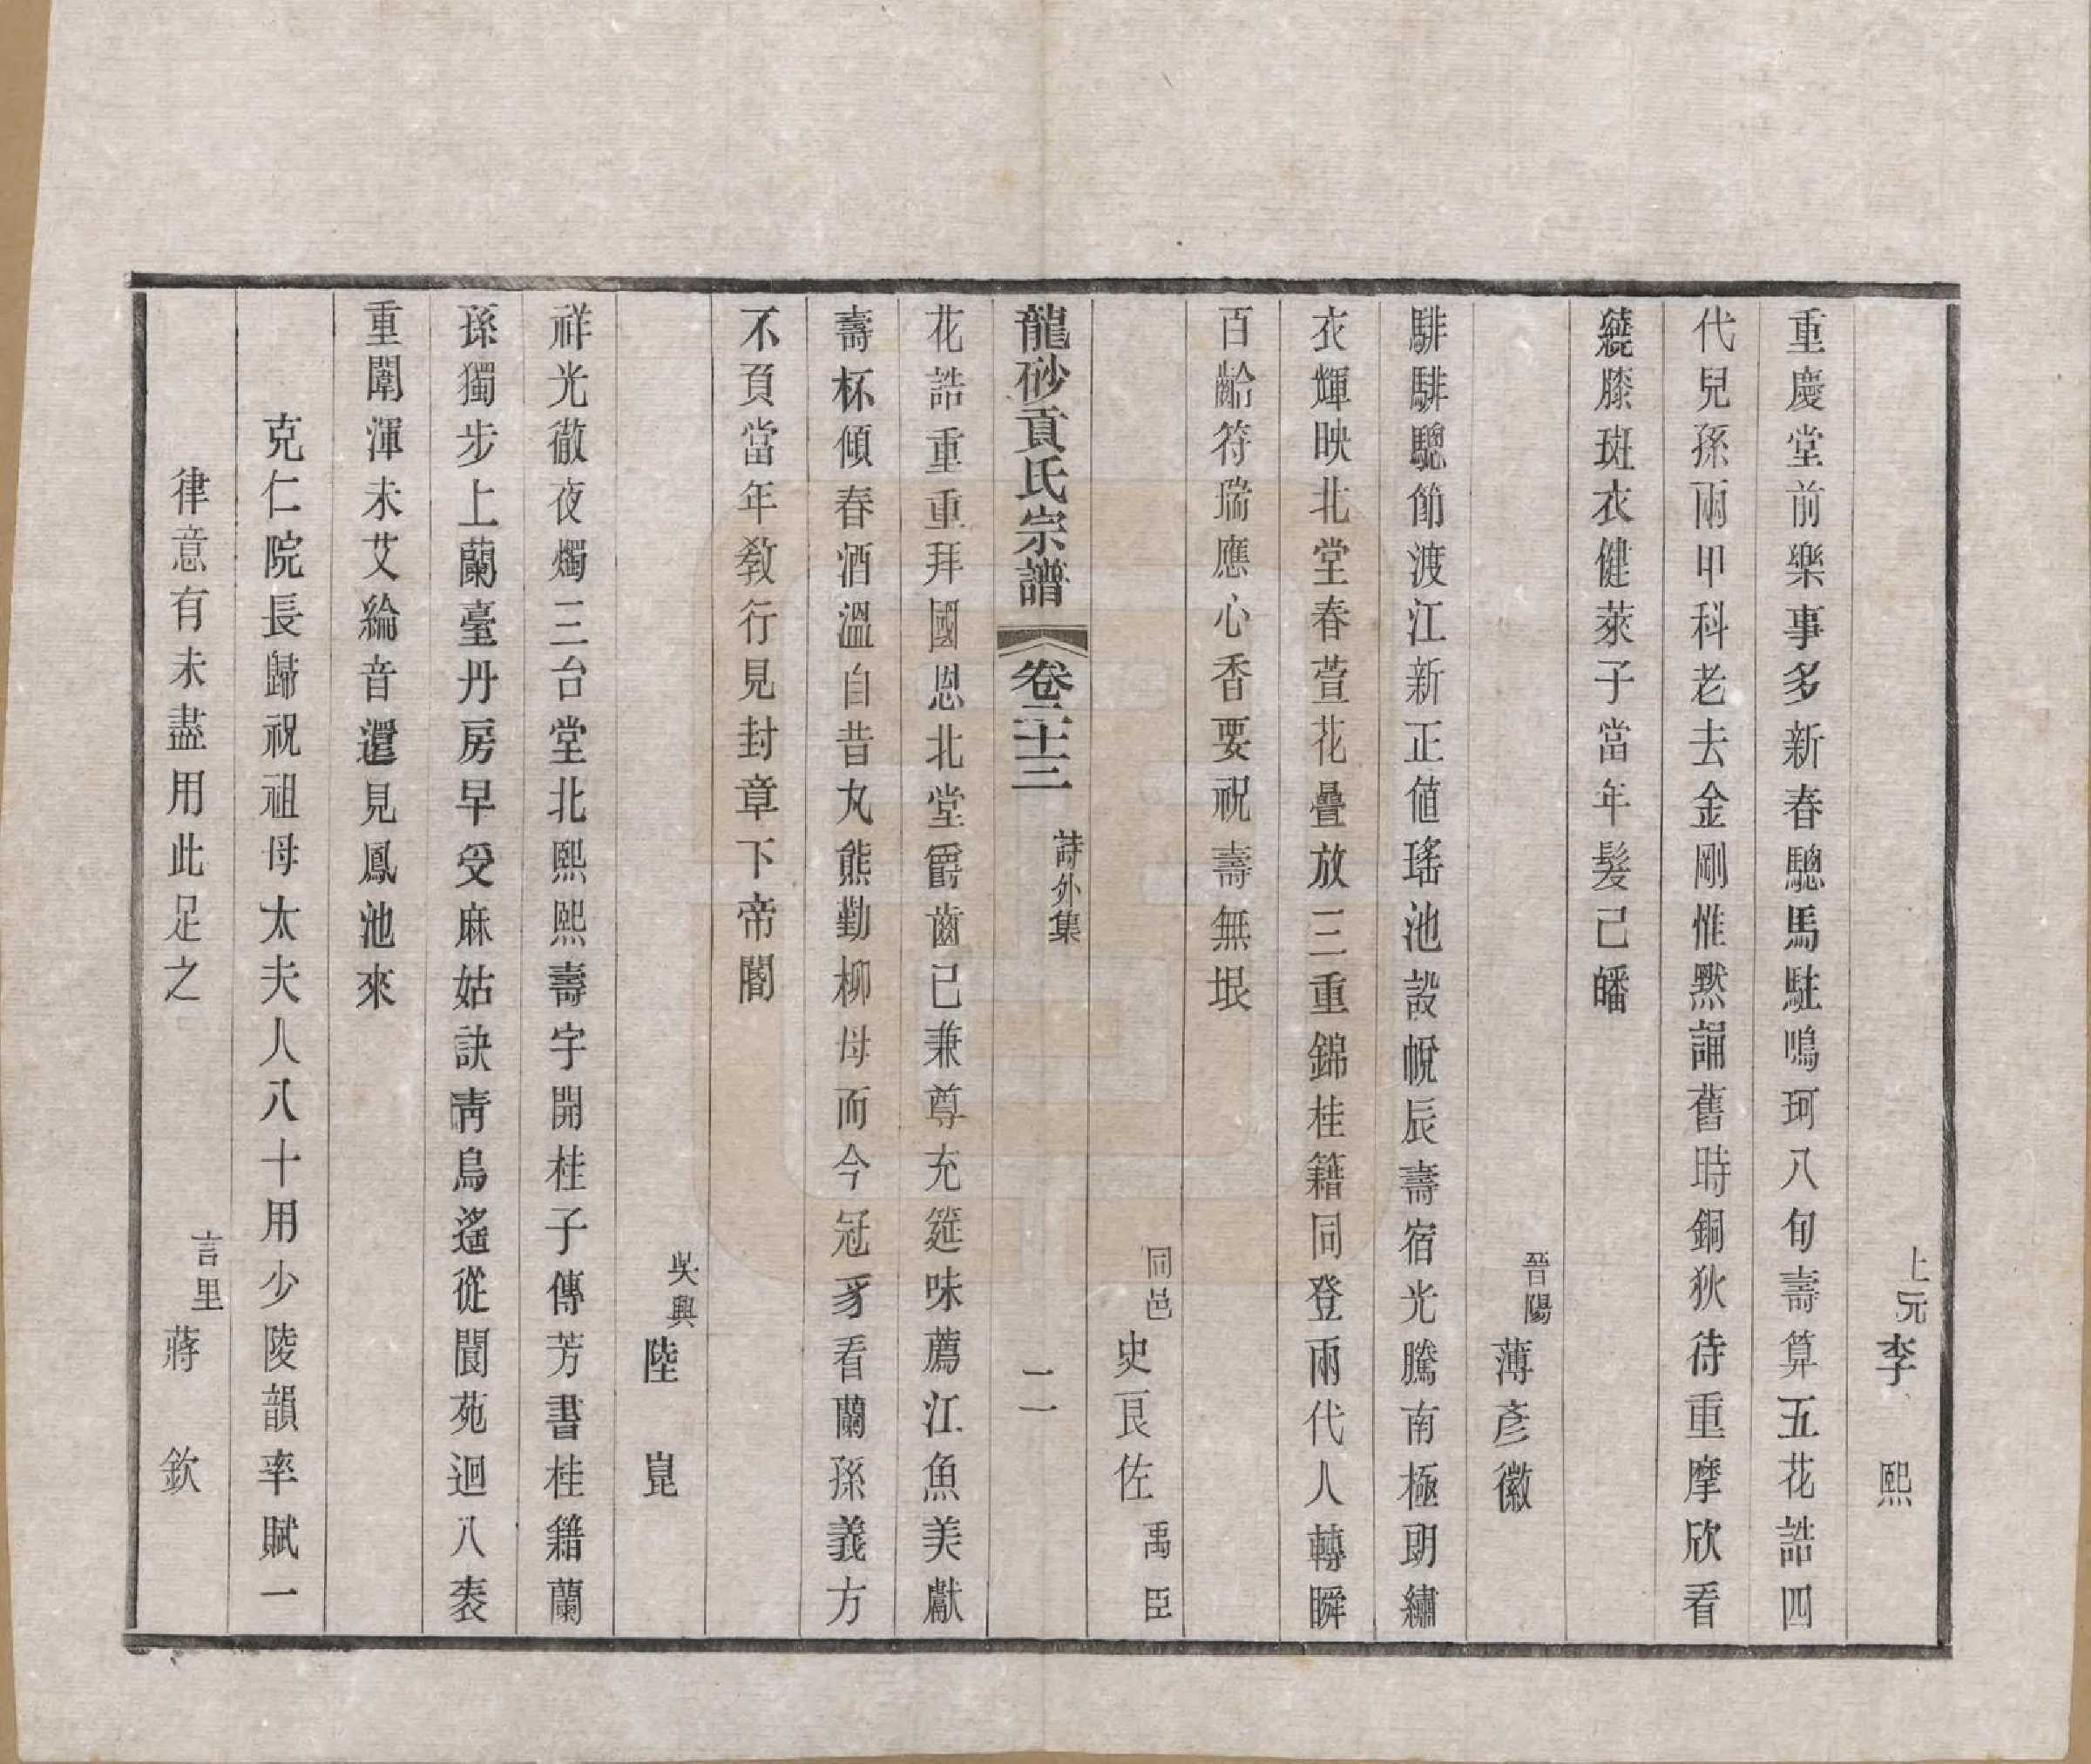 上元 李 熙
重慶堂前樂事多新春驄馬駐鳴珂八旬壽算五花誥四
代兒孫兩甲科老去金剛惟默誦舊時銅狄待重摩欣看
繞膝斑衣健萊子當年髮已皤
晉陽 薄彥徽
騑騑驄節渡江新正値瑤池設帨辰壽宿光騰南極朗繡
衣輝映北堂春萱花疊放三重錦桂籍同登兩代人轉瞬
百齡符瑞應心香要祝壽無垠
同邑 史良佐 禹臣
龍砂貢氏宗譜 卷二十三 詩外集 二
花誥重重拜國恩北堂爵齒已兼尊充筵味薦江魚美獻
壽杯傾春酒溫自昔丸熊勤柳母而今冠豸看蘭孫義方
不負當年教行見封章下帝閽
吳興 陸 崑
祥光徹夜燭三台堂北熙熙壽宇開桂子傳芳書桂籍蘭
孫獨步上蘭臺丹房早受麻姑訣靑鳥遙從閬苑迴八袠
重闈渾未艾綸音還見鳳池來
克仁院長歸祝祖母太夫人八十用少陵韻率賦一
律意有未盡用此足之 言里 蔣 欽